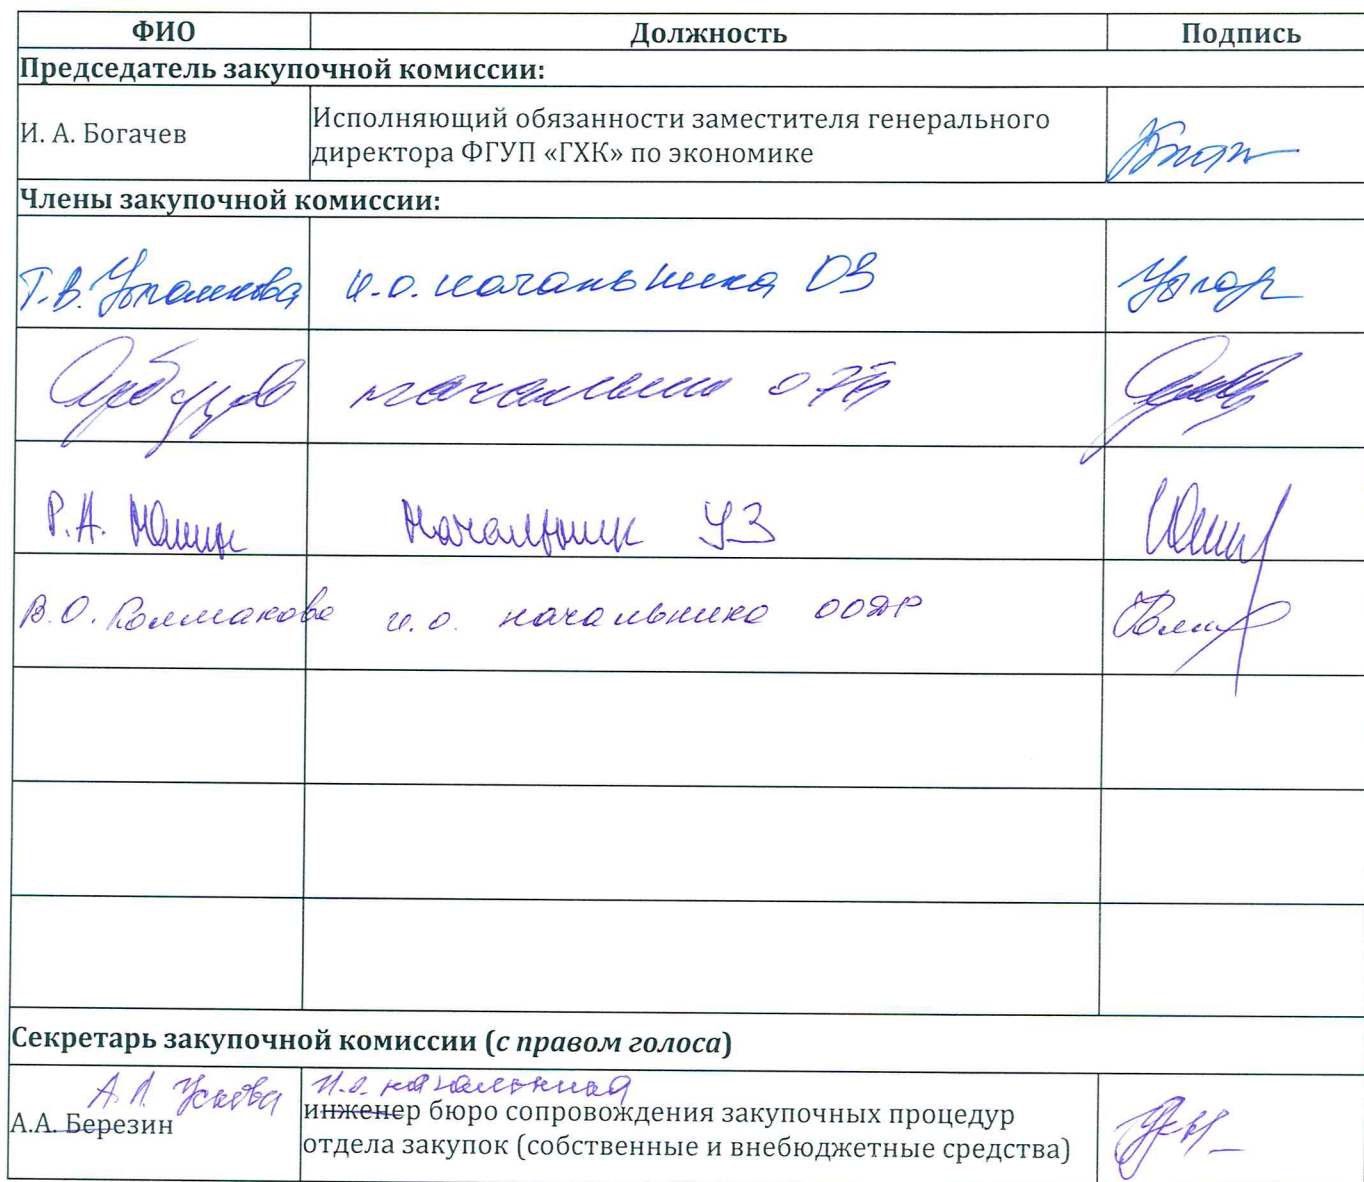 ФИО Должность Подпись
Председатель закупочной комиссии:
И. А. Богачев
Исполняющий обязанности заместителя генерального
директора ФГУП «ГХК» по экономике
Члены закупочной комиссии:
Т.В. и.о. начальника ОЗ
начальник
Р.А. Юшин начальник УЗ
В.О. Колмакова и.о. начальника ООДР
Секретарь закупочной комиссии (с правом голоса)
А.Л. Ускова и.о. начальника
А.А. Березин
инженер бюро сопровождения закупочных процедур
отдела закупок (собственные и внебюджетные средства)